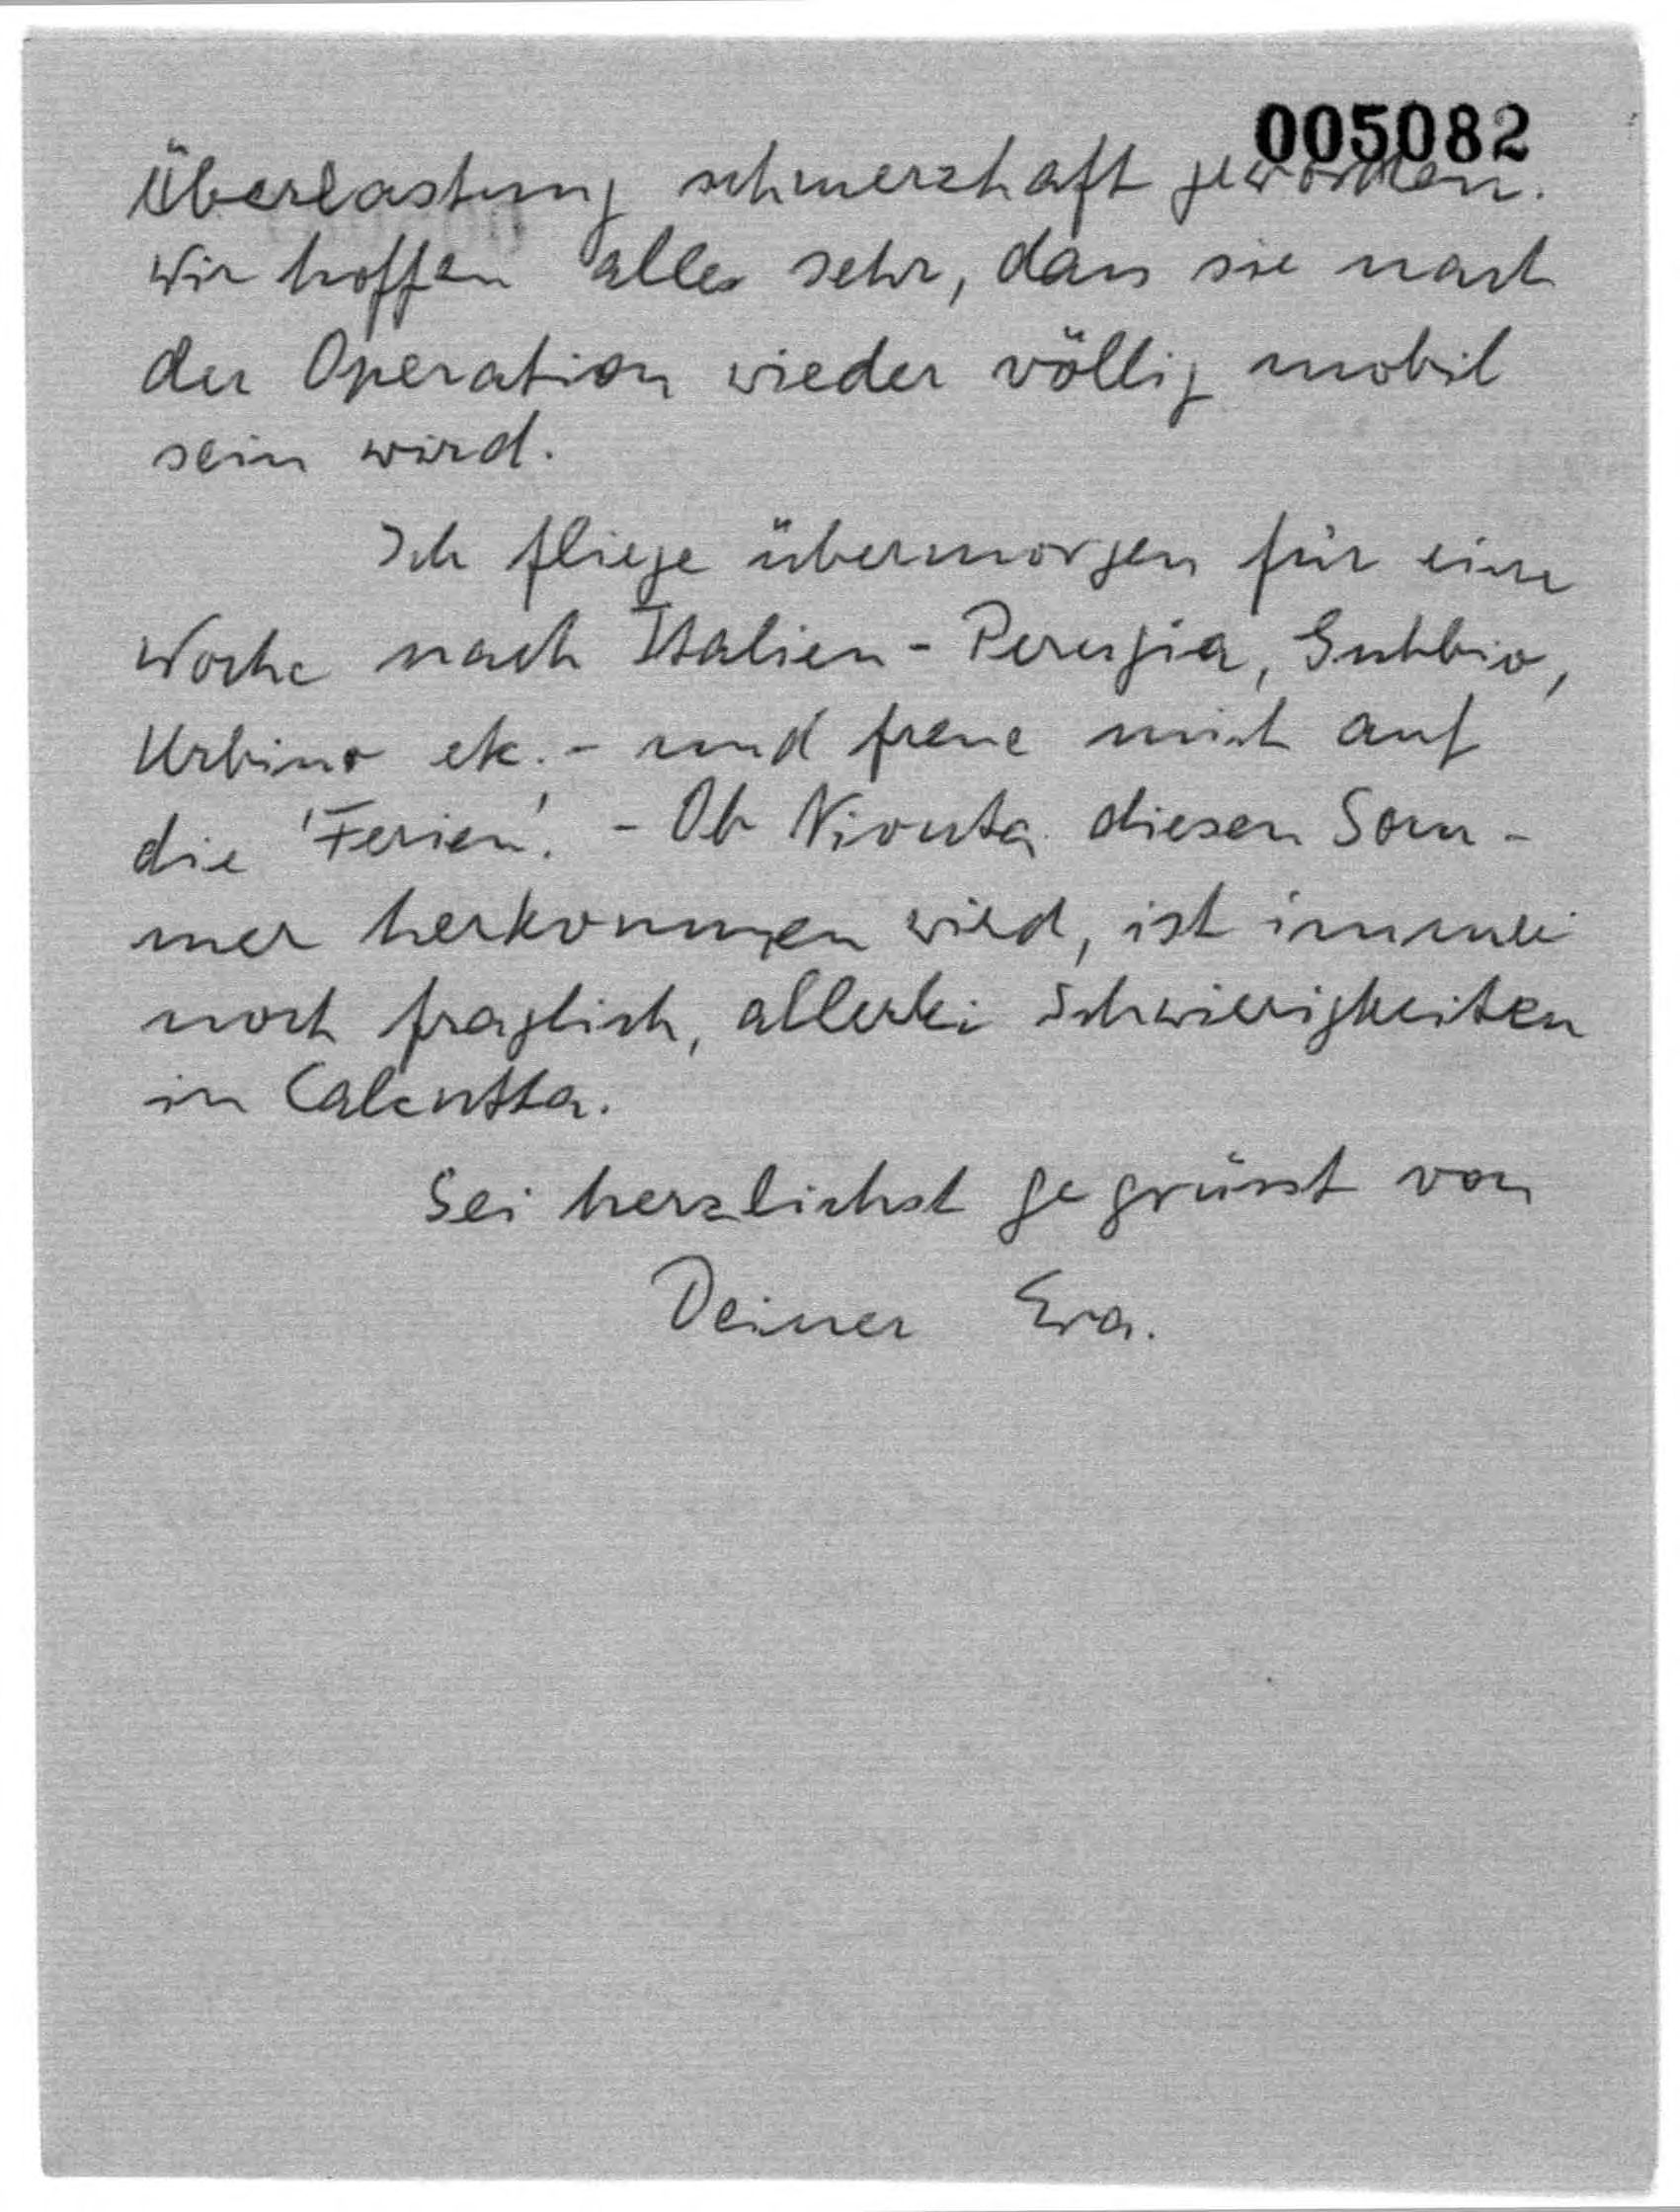 005082
Überlastung schmerzhaft geworden.
Wir hoffen alle sehr, dass sie nach
der Operation wieder völlig mobil
sein wird.
Ich fliege übermorgen für eine
Woche nach Italien - Perugia, Gubbio,
Urbino etc. - und freue mich auf
die 'Ferien'. - Ob Nivouta diesen Som-
mer herkommen wird, ist immer
noch fraglich, allerlei Schwierigkeiten
in Calcutta.
Sei herzlichst gegrüsst von
Deiner Eva.